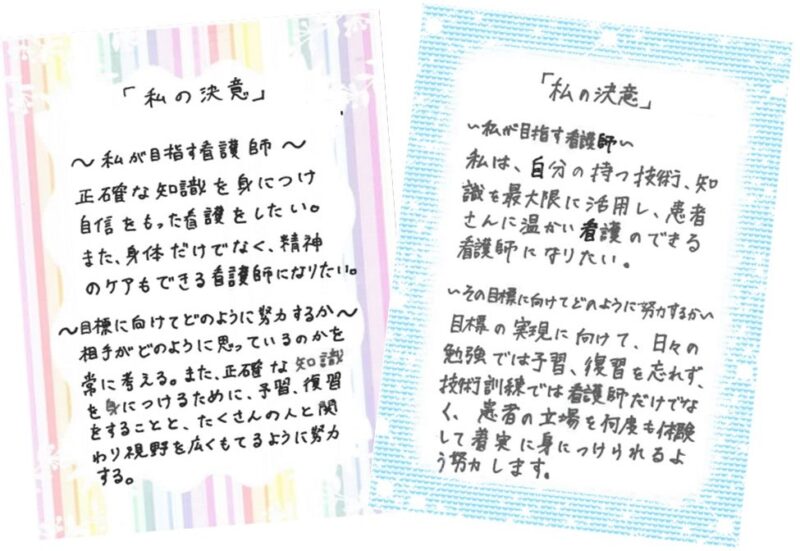 「私の決意」
～私が目指す看護師～
正確な知識を身につけ
自信をもった看護をしたい。
また、身体だけでなく、精神
のケアもできる看護師になりたい。
～目標に向けてどのように努力するか～
相手がどのように思っているのかを
常に考える。また、正確な知識
を身につけるために、予習、復習
をすることと、たくさんの人と関
わり視野を広くもてるように努力
する。
「私の決意」
～私が目指す看護師～
私は、自分の持つ技術、知
識を最大限に活用し、患者
さんに温かい看護のできる
看護師になりたい。
～その目標に向けてどのように努力するか～
目標の実現に向けて、日々の
勉強では予習、復習を忘れず、
技術訓練では看護師だけでな
く、患者の立場を何度も体験
して着実に身につけられるよ
う努力します。